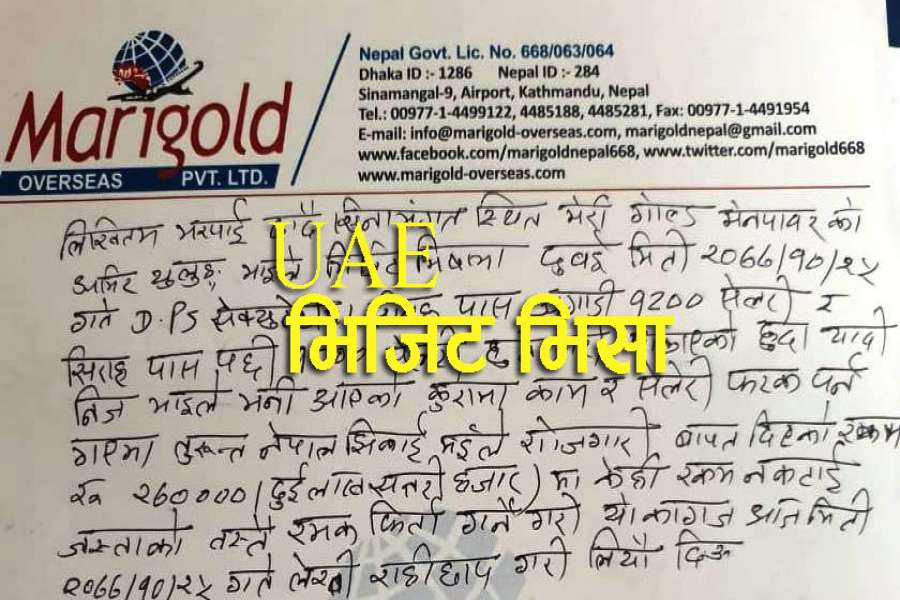 Marigold
OVERSEAS PVT. LTD.
Nepal Govt. Lic. No. 668/063/064
Dhaka ID :- 1286 Nepal ID :- 284
Sinamangal-9, Airport, Kathmandu, Nepal
Tel.: 00977-1-4499122, 4485188, 4485281, Fax: 00977-1-4491954
E-mail: info@marigold-overseas.com, marigoldnepal@gmail.com
www.facebook.com/marigoldnepal668, www.twitter.com/marigold668
www.marigold-overseas.com
लिखितम भरपाई स्थित मेरी गोल्ड मेनपावर को
दुवई मिती २०७७/१०/२५
गते D.P.S पास अगाडी १२०० सेलरी र
पास पछी हुदा यादी
निज माइले भनी आएको कुरामा काम र सेलेरी फरक पर्न
गएमा तुरून्त नेपाल झिकाई मईले रोजगारी बापत दिएको रकम
रु २७०००० ( दुई लाख सत्तरी हजार ) मा केही रकम नकटाई
जस्ताको तस्तै रमक फिर्ता गर्ने गरी यो कागज आज मिती
२०७७/१०/२५ गते लेखी सहीछाप गरी लियौ दिऊ
UAE
भिजिट भिसा